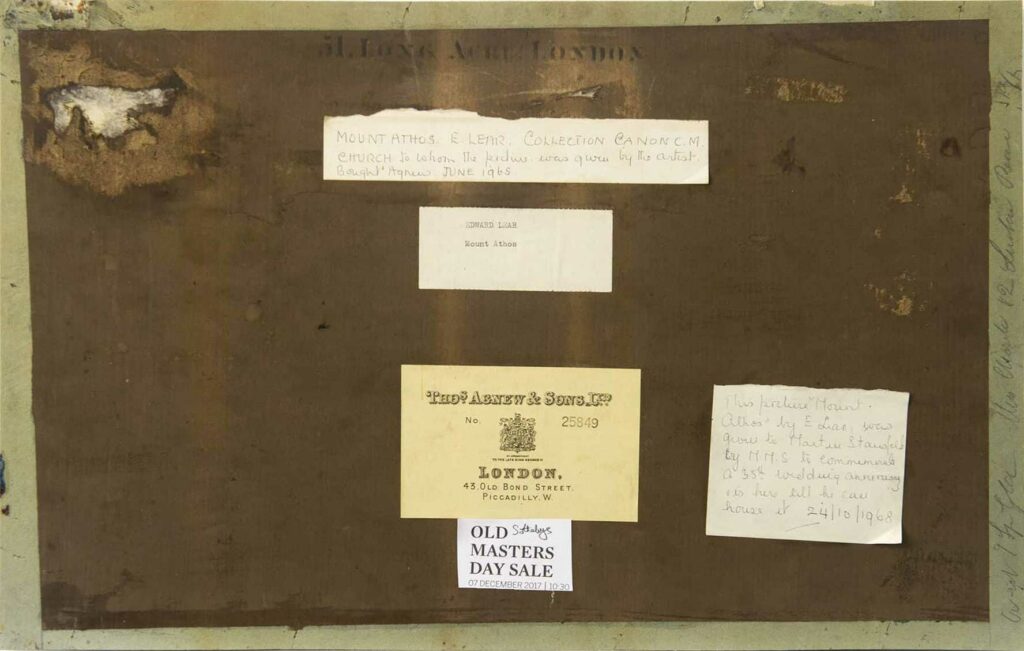 51, LONG ACRE, LONDON
MOUNT ATHOS. E LEAR. COLLECTION CANON C.M.
CHURCH to whom the picture was given by the artist.
Bought Agnew JUNE 1968
EDWARD LEAR
Mount Athos
THOS. AGNEW & SONS, LTD.
No. 25849
LONDON.
43, OLD BOND STREET.
PICCADILLY, W.
OLD Sothebys
MASTERS
DAY SALE
07 DECEMBER 2017 | 10:30
This picture "Mount
Athos" by E Lear, was
given to Martin
by M.M.S to commemorate
a 35th wedding anniversary
is her till he can
house it 24/10/1968